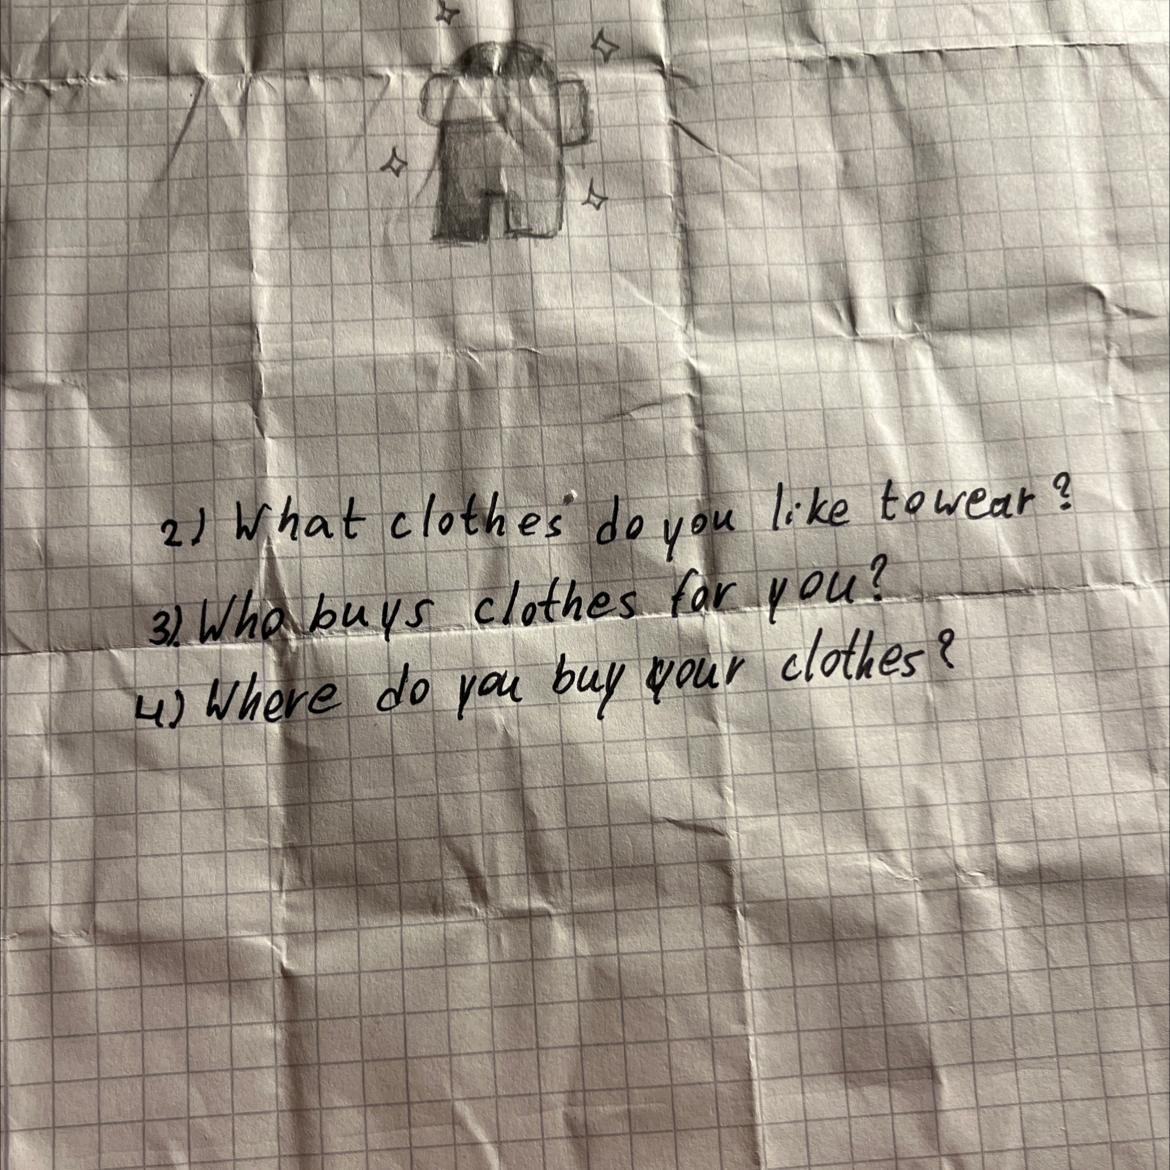 2) What clothes do you like to wear?
3). Who buys clothes for you?
4) Where do you buy your clothes?